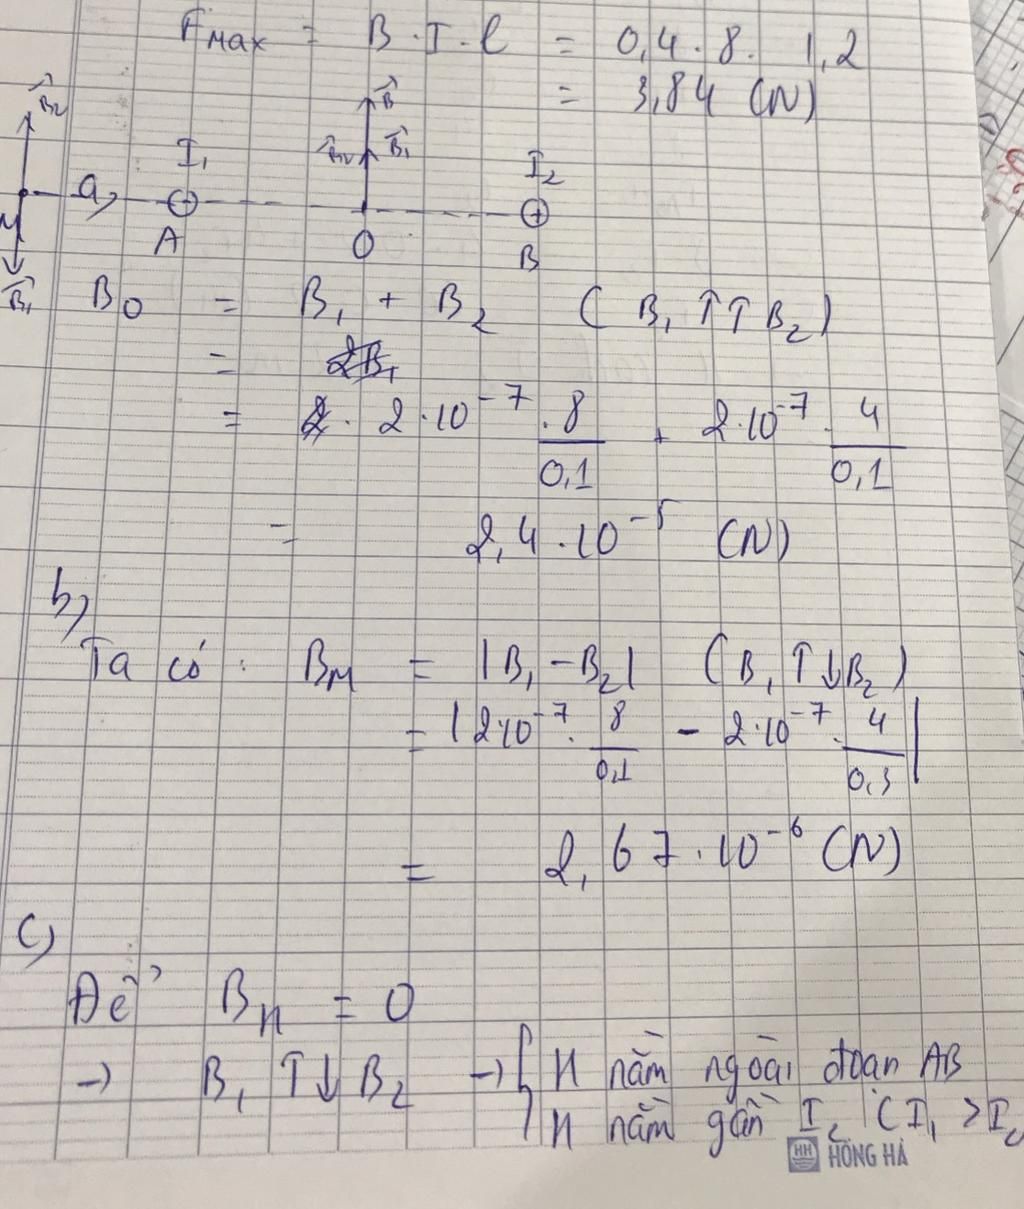 F_MAX = B.I.l = 0,4.8. 1,2
= 3,84 (N)
B₂ B
I₁ B₁ I₂
a,
M A O B
B₁ B₀ = B₁ + B₂ (B₁ ↑↑ B₂)
= 2B₁
= 2. 2.10⁻⁷ .8/0,1 + 2.10⁻⁷ . 4/0,1
= 2,4.10⁻⁵ (N)
b,
Ta có: B_M = |B₁ - B₂| (B₁ ↑↓ B₂)
= |2.10⁻⁷. 8/0,1 - 2.10⁻⁷. 4/0,3|
= 2,67.10⁻⁶ (N)
c,
Để B_N = 0
→ B₁ ↑↓ B₂ → { N nằm ngoài đoan AB
N nằm gần I₂ (I₁ > I₂
HH HỒNG HÀ